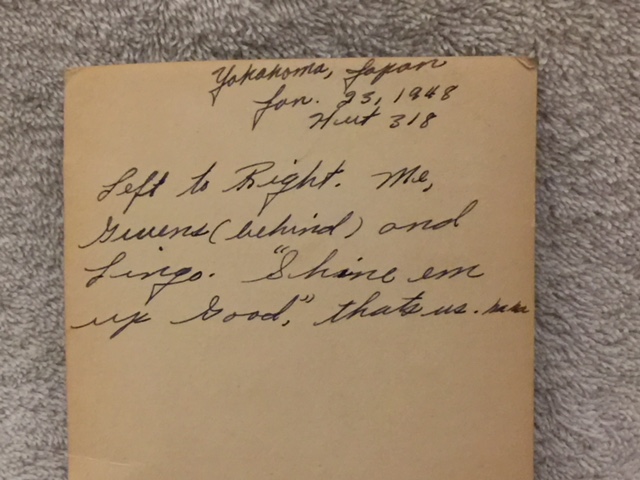 Yokohoma, Japan
Jan. 23, 1948
Hut 318
Left to Right. Me,
Givens (behind) and
Lingo. "Shine em
up Good," thats us. ha ha